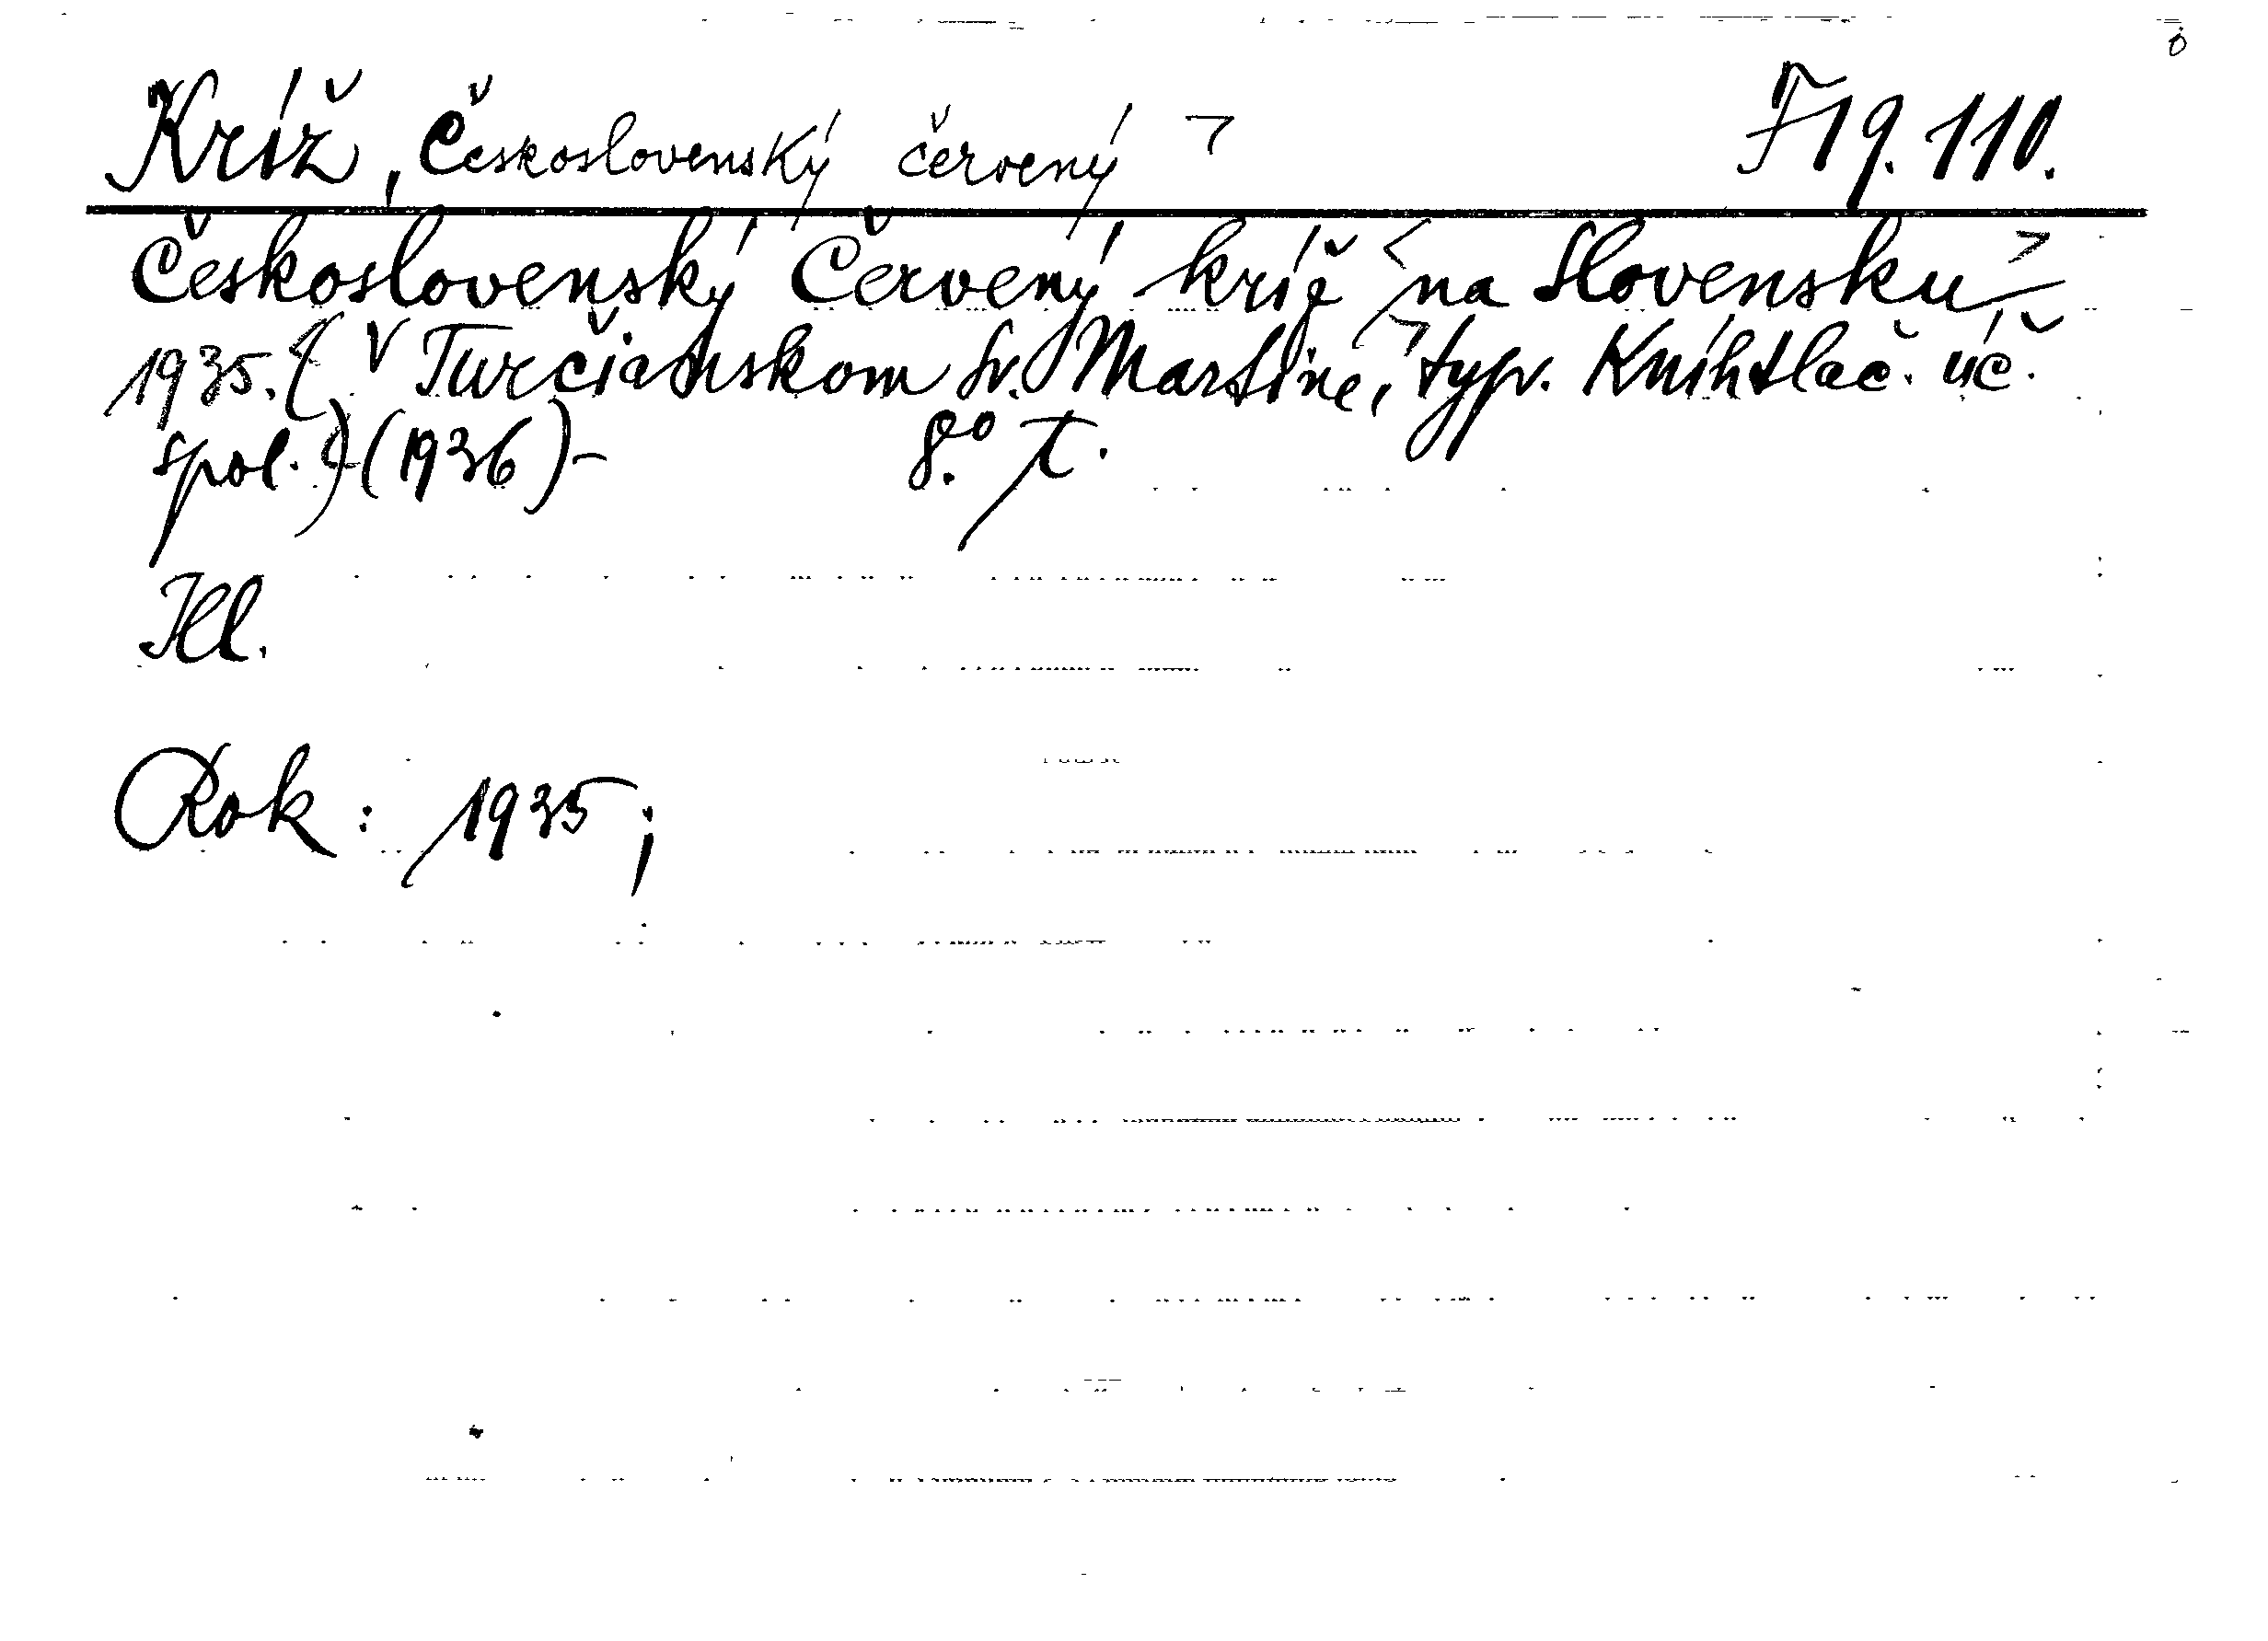 Kríž, Československý červený ¬ F 19.110.
Československý Červený kríž <na Slovensku>
1935. (V Turčianskom Sv. Martine, typ. Kníhtlač. úč.
spol.) (1936)- 8.°
Ill.
Rok: 1935;